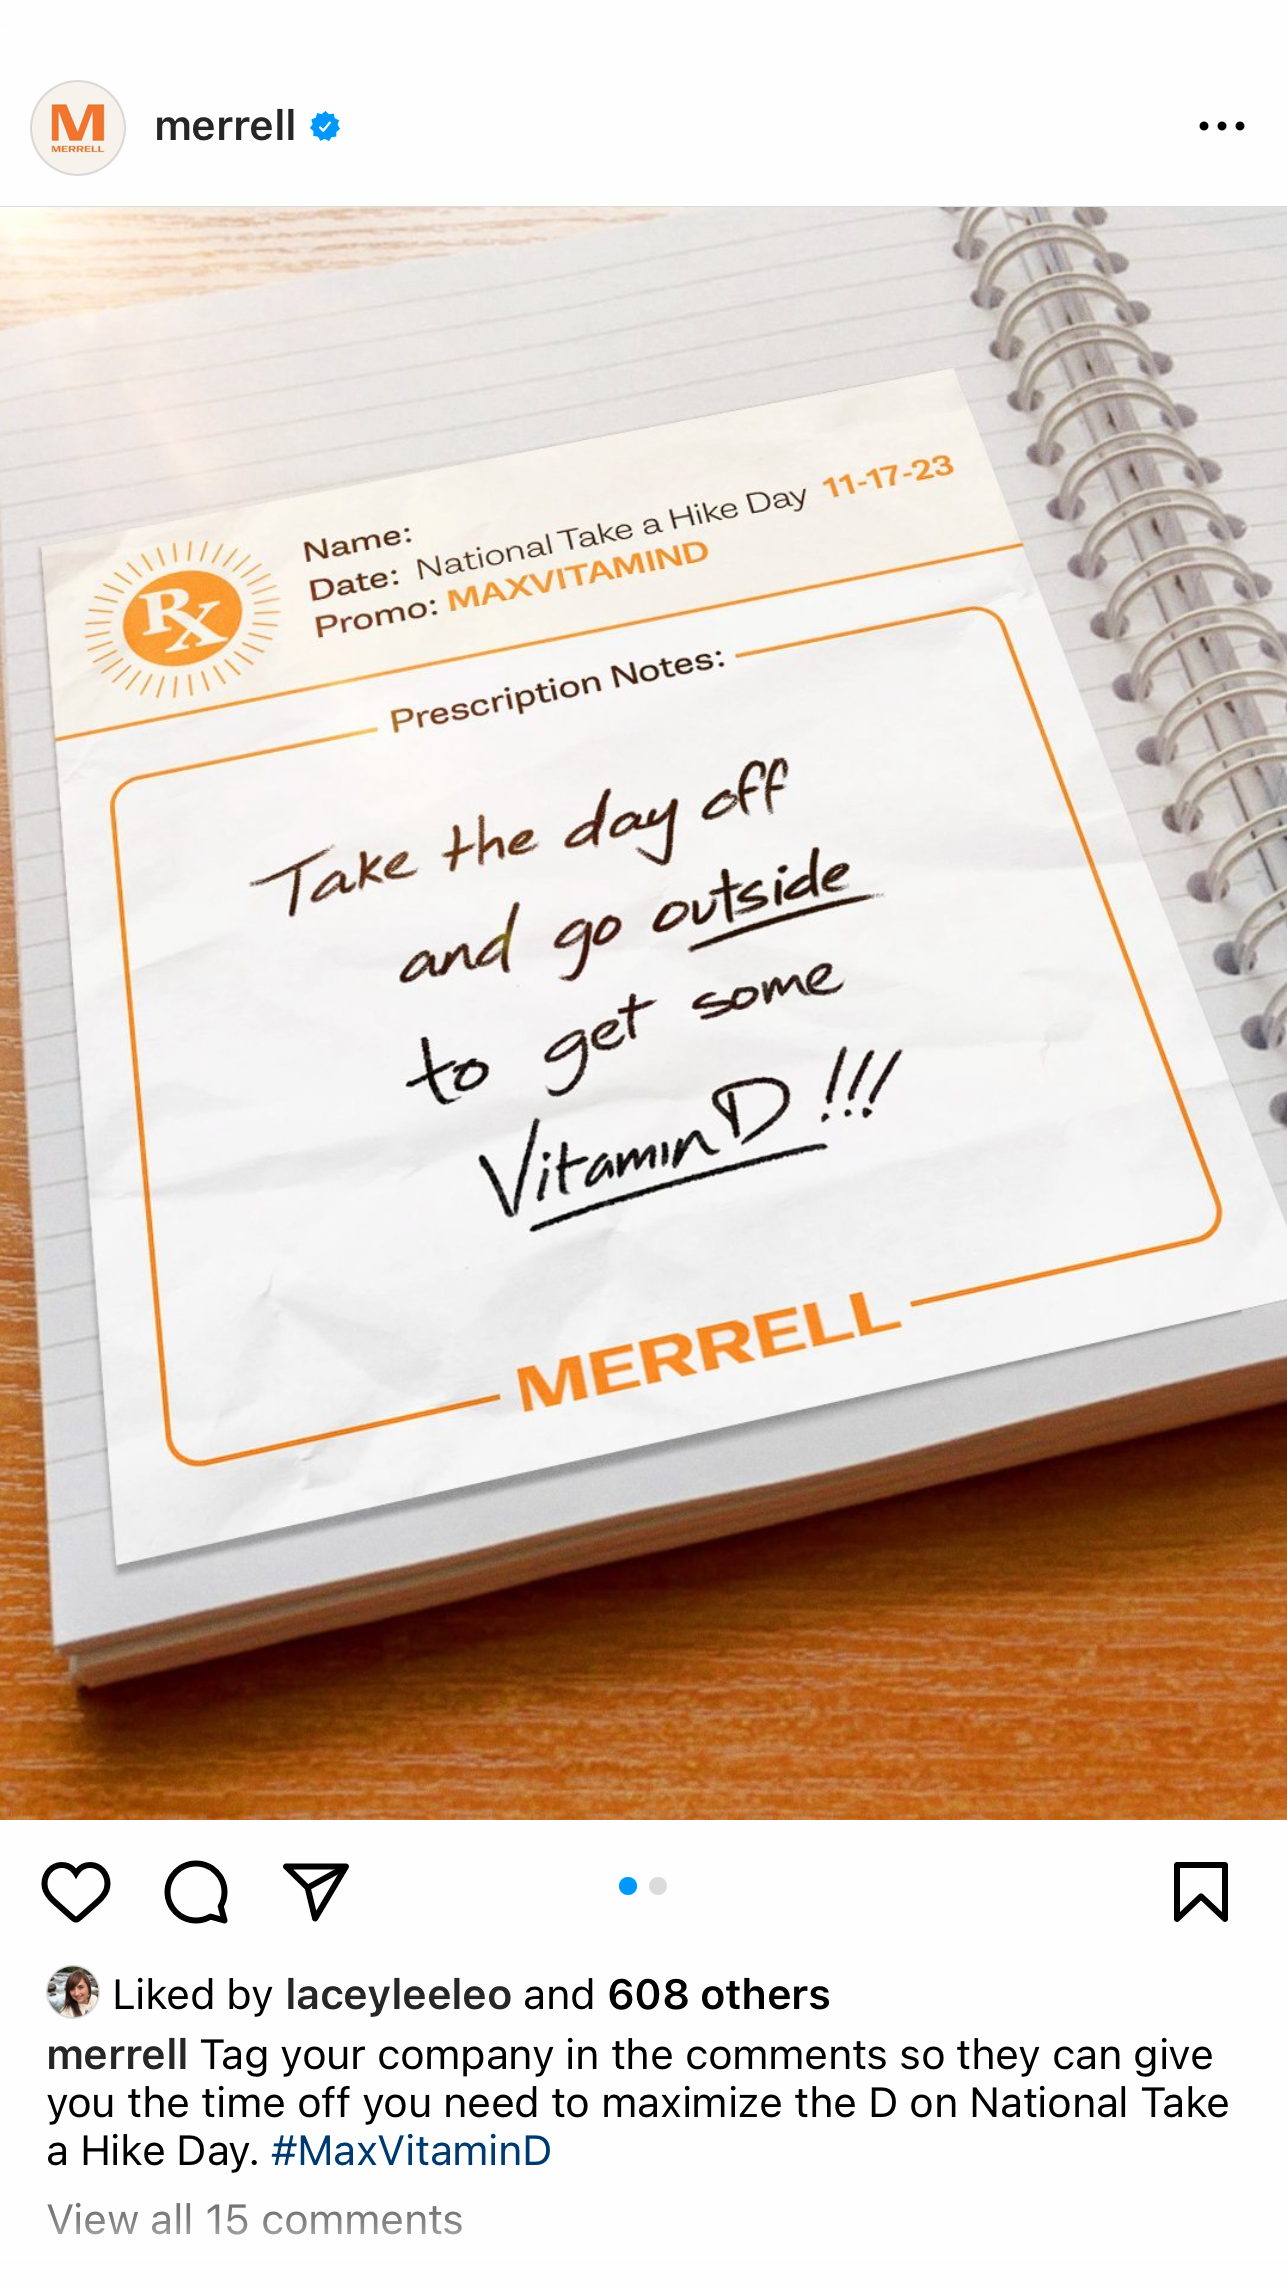 M
MERRELL
merrell
Name:
Date: National Take a Hike Day 11-17-23
Promo: MAXVITAMIND
Rx
Prescription Notes:
Take the day off
and go outside
to get some
Vitamin D!!!
MERRELL
Liked by laceyleeleo and 608 others
merrell Tag your company in the comments so they can give
you the time off you need to maximize the D on National Take
a Hike Day. #MaxVitaminD
View all 15 comments